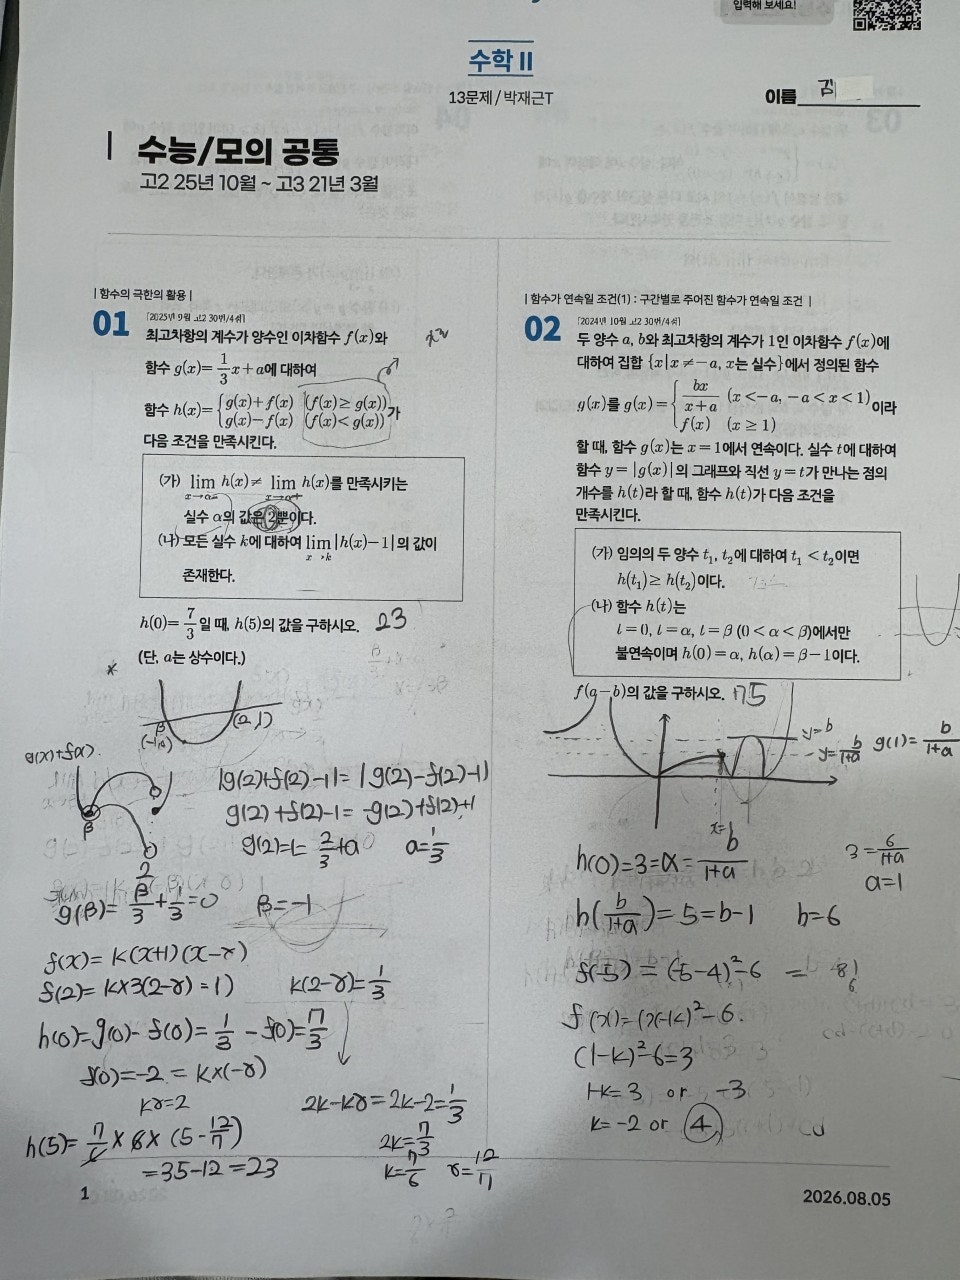 입력해 보세요!
수학 II
13문제 / 박재근T
이름 김
수능/모의 공통
고2 25년 10월 ~ 고3 21년 3월
| 함수의 극한의 활용 |
01
「2025년 9월 고2 30번/4점」
최고차항의 계수가 양수인 이차함수 f(x)와
함수 g(x)=1/3x+a에 대하여
함수 h(x)={g(x)+f(x) (f(x)≥g(x))
g(x)−f(x) (f(x)<g(x))가
다음 조건을 만족시킨다.
(가) lim x→α− h(x)≠ lim x→α+ h(x)를 만족시키는
실수 α의 값은 2뿐이다.
(나) 모든 실수 k에 대하여 lim x→k |h(x)−1|의 값이
존재한다.
h(0)=7/3일 때, h(5)의 값을 구하시오. 23
(단, a는 상수이다.)
β
(2,1)
g(x)+f(x)
β
2
|g(2)+f(2)-1| = |g(2)-f(2)-1|
g(2)+f(2)-1 = -g(2)+f(2)+1
g(2)=1= 2/3+a a=1/3
g(β)= β/3+1/3=0 β=-1
f(x)= k(x+1)(x-r)
f(2)= k×3(2-r)=1) k(2-r)=1/3
h(0)=g(0)-f(0)= 1/3 -f(0)=7/3
f(0)=-2 = k×(-r)
kr=2
2k-kr=2k-2=1/3
2k=7/3
k=7/6 r=12/7
h(5)= 7/6 × 6 × (5-12/7)
=35-12=23
1
| 함수가 연속일 조건(1) : 구간별로 주어진 함수가 연속일 조건 |
02
「2024년 10월 고2 30번/4점」
두 양수 a, b와 최고차항의 계수가 1인 이차함수 f(x)에
대하여 집합 {x|x≠−a, x는 실수}에서 정의된 함수
g(x)를 g(x)={bx/x+a (x<−a, −a<x<1)
f(x) (x≥1)이라
할 때, 함수 g(x)는 x=1에서 연속이다. 실수 t에 대하여
함수 y=|g(x)|의 그래프와 직선 y=t가 만나는 점의
개수를 h(t)라 할 때, 함수 h(t)가 다음 조건을
만족시킨다.
(가) 임의의 두 양수 t₁, t₂에 대하여 t₁<t₂이면
h(t₁)≥h(t₂)이다.
(나) 함수 h(t)는
t=0, t=α, t=β (0<α<β)에서만
불연속이며 h(0)=α, h(α)=β−1이다.
f(a−b)의 값을 구하시오. 75
y=b
y=b/1+a g(1)=b/1+a
x=1
h(0)=3=α=b/1+a
3=6/1+a
a=1
h(b/1+a)=5=b-1 b=6
f(-5) = (-5-4)²-6 = 81
6
f(x)=(x-k)²-6
(1-k)²-6=3
1-k=3 or -3
k=-2 or 4
2026.08.05